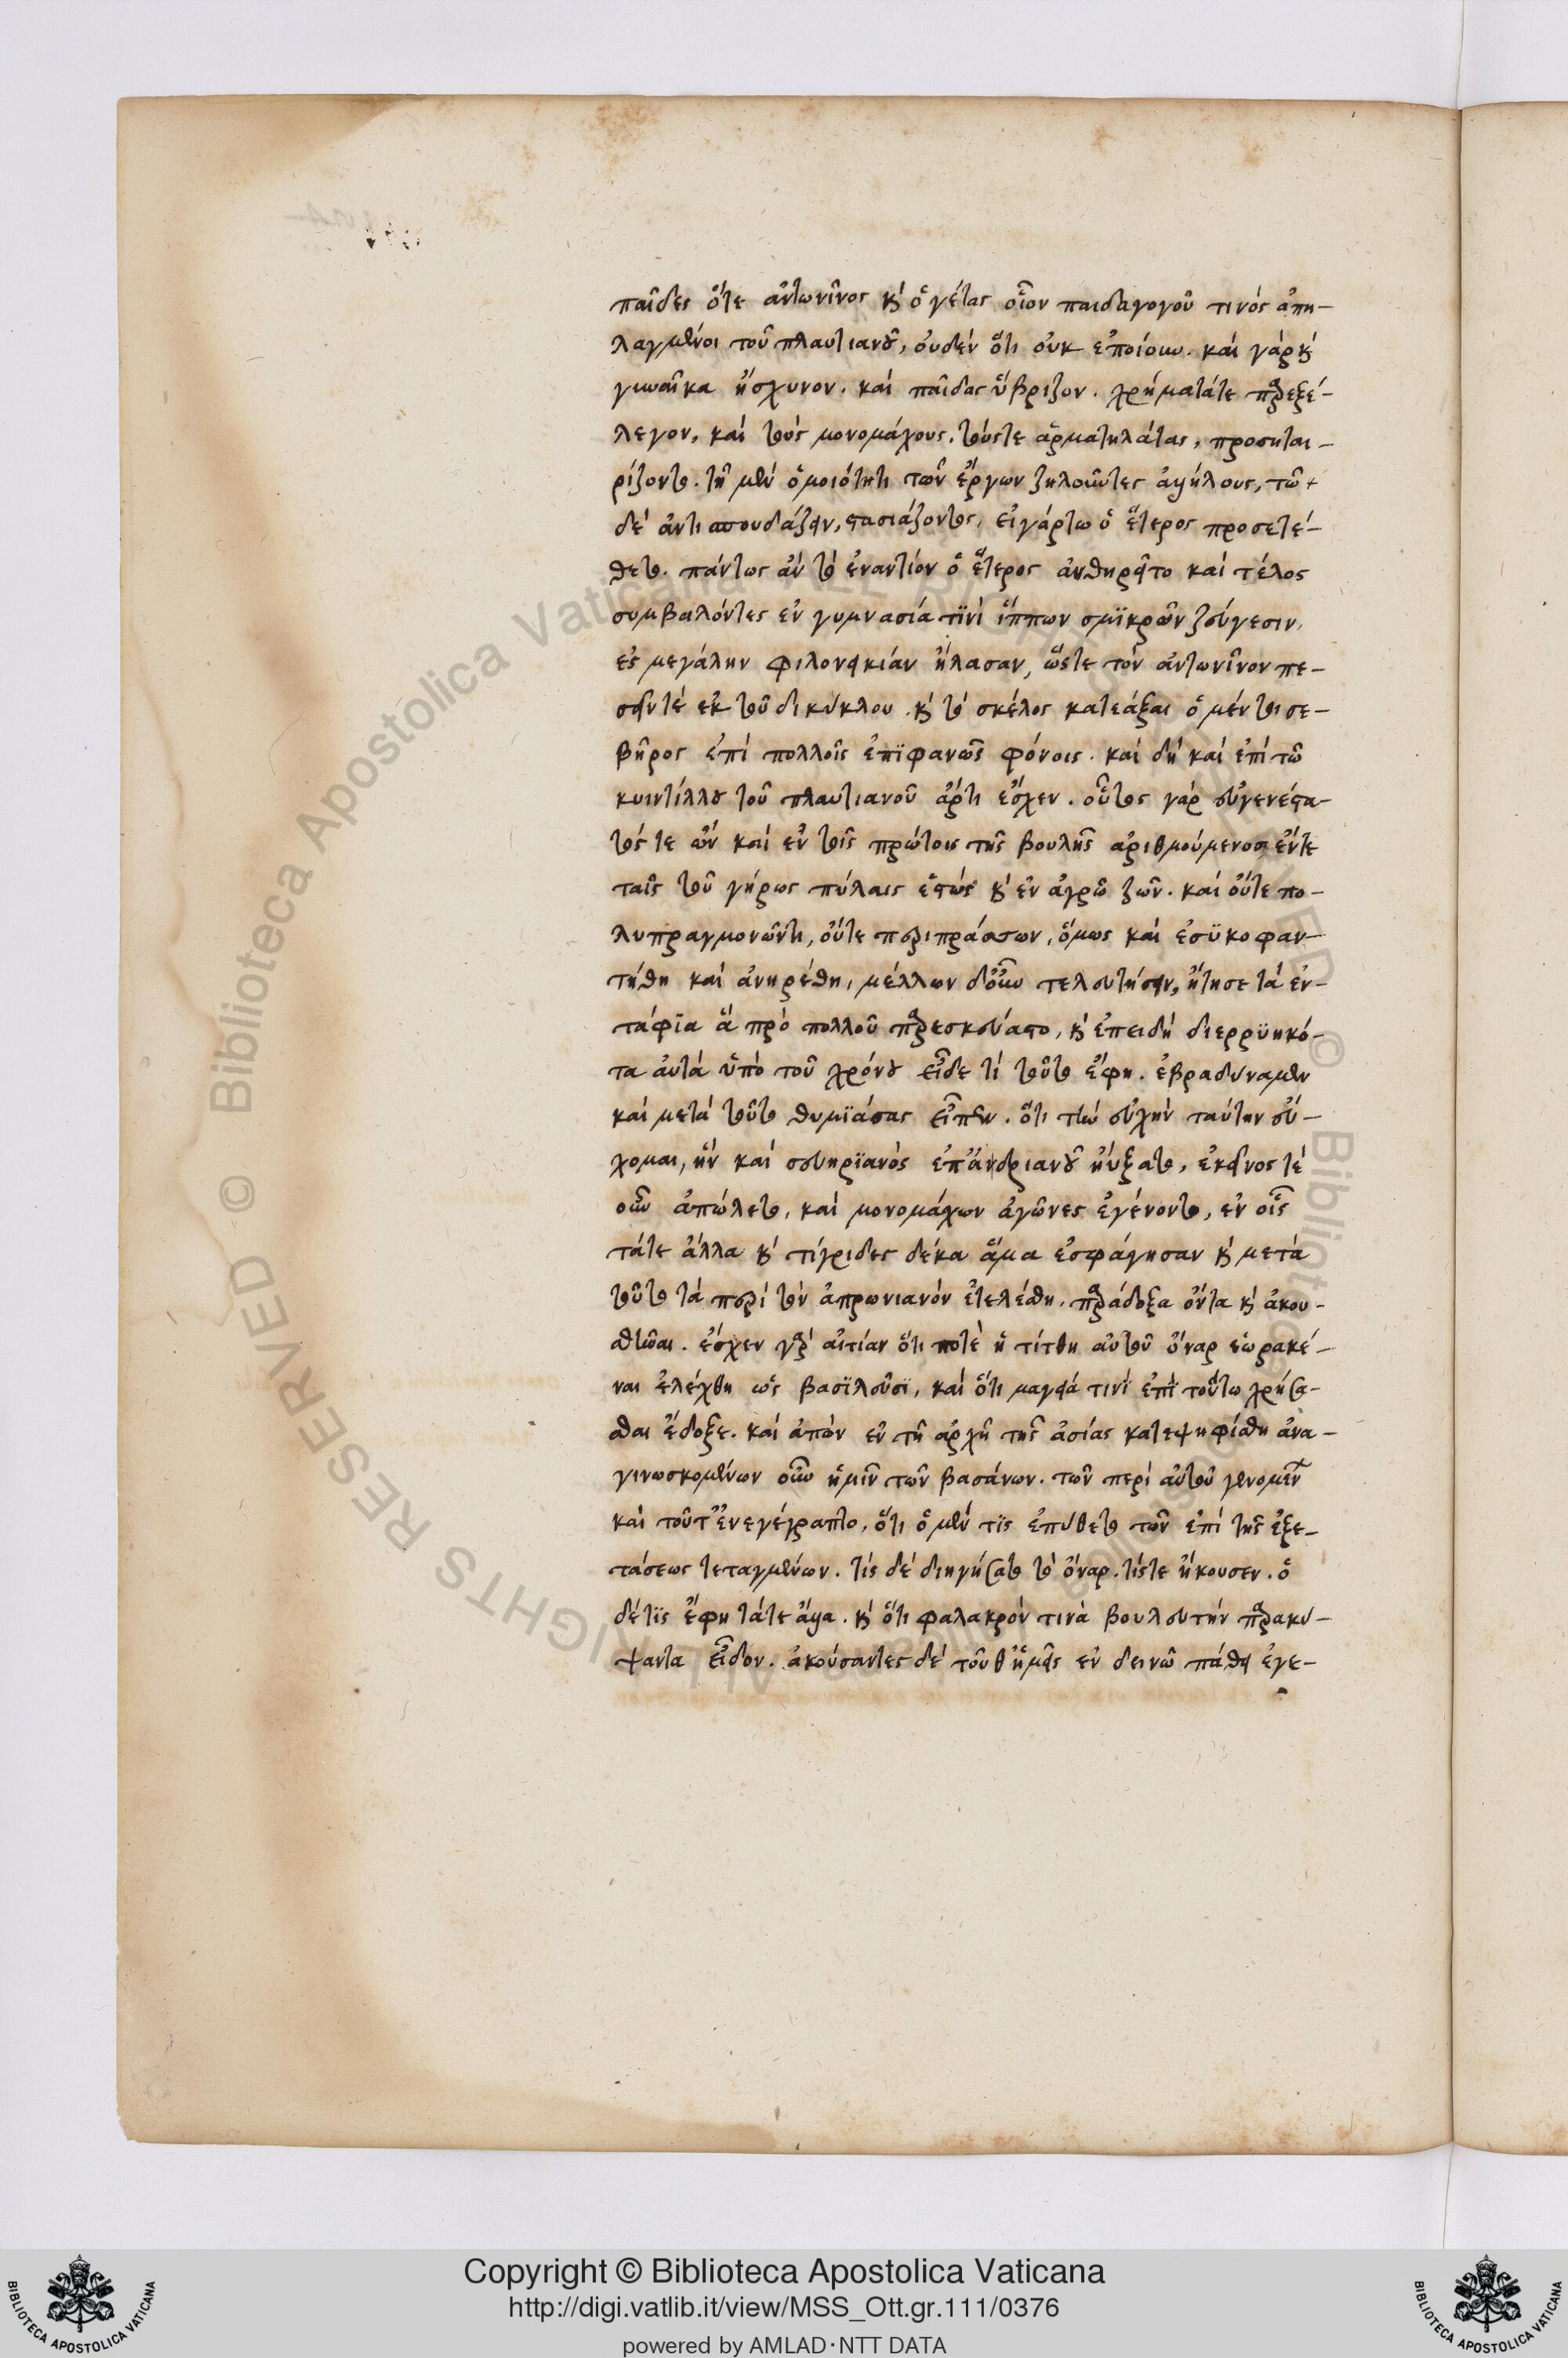 παῖδες ὅτε ἀντωνῖνος κ̀ ὁ γέτας οἷον παιδαγογοῦ τινὸς ἀπη-
λαγμένοι τοῦ πλαυτιανοῦ, οὐδὲν ὅτι οὐκ ἐποίουν. καὶ γὰρ κ̀
γυναῖκα ἤσχυνον. καὶ παῖδας ὕβριζον. χρήματάτε παρεξέ-
λεγον, καὶ τοὺς μονομάχους. τούςτε ἁρματηλάτας, προσηται-
ρίζοντο. τῆ μὲν ὁμοιότητι τῶν ἔργων ζηλοῦντες ἀλλήλους, τῶ
δὲ ἀντισπουδάζειν, στασιάζοντες, εἰ γάρτω ὁ ἕτερος προσετέ-
θετο. πάντως ἂν τὸ ἐναντίον ὁ ἕτερος ἀνθηρεῖτο καὶ τέλος
συμβαλόντες ἐν γυμνασία τϊνὶ ἵππων σμϊκρῶν ζεύγεσιν,
ἐς μεγάλην φιλονεικίαν ἤλασαν, ὥστε τὸν ἀντωνῖνον πε-
σεῖντέ ἐκ τοῦ δικύκλου. κ̀ τὸ σκέλος κατεάξαι ὁ μέντοι σε-
βῆρος ἐπὶ πολλοῖς ἐπϊφανῶς φόνοις. καὶ δὴ καὶ ἐπὶ τῶ
κυιντίλλου τοῦ πλαυτιανοῦ ἄρτι ἔσχεν. οὗτος γὰρ εὐγενέστα-
τός τε ὢν καὶ ἐν τοῖς πρώτοις τῆς βουλῆς ἀριθμούμενος ἔντε
ταῖς τοῦ γήρως πύλαις ἑστὼς κ̀ ἐν ἀγρῶ ζῶν. καὶ οὔτε πο-
λυπραγμονῶντι, οὔτε περιπράσσων, ὅμως καὶ ἐσϋκοφαν-
τήθη καὶ ἀνηρέθη, μέλλων δ' οὖν τελευτήσειν, ἤτησε τὰ ἐν-
τάφϊα ἃ πρὸ πολλοῦ παρεσκεύαστο, κ̀ ἐπειδὴ διερρϋηκό-
τα αὐτὰ ὑπὸ τοῦ χρόνου εἶδε τί τοῦτο ἔφη. ἐβραδύναμεν
καὶ μετὰ τοῦτο θυμϊάσας εἶπεν. ὅτι τὴν εὐχὴν ταύτην εὔ-
χομαι, ἣν καὶ σευηρϊανὸς ἐπ' ἀνδριανοῦ ηὔξατο, ἐκεῖνος τὲ
οὖν ἀπώλετο, καὶ μονομάχων ἀγῶνες ἐγένοντο, ἐν οἷς
τάτε ἄλλα κ̀ τίγριδες δέκα ἅμα ἐσφάγησαν κ̀ μετὰ
τοῦτο τὰ περὶ τὸν ἀπρωνιανὸν ἐτελέσθη, παράδοξα ὄντα κ̀ ἀκου-
σθῆναι. ἔσχεν γὰρ αἰτίαν ὅτι ποτὲ ἡ τίτθη αὐτοῦ ὄναρ ἑωρακέ-
ναι ἐλέχθη ὡς βασϊλεύσϊ, καὶ ὅτι μαγεία τινὶ ἐπὶ τούτω χρήσα-
σθαι ἔδοξε. καὶ ἀπὼν ἐν τῆ ἀρχῆ τῆς ἀσίας κατεψηφίσθη ἀνα-
γινωσκομένων οὖν ἡμῖν τῶν βασάνων. τῶν περὶ αὐτοῦ γενομένων
καὶ τοῦτ' ἐνεγέγραπτο, ὅτι ὁ μὲν τϊς ἐπύθετο τῶν ἐπὶ τῆς ἐξε-
τάσεως τεταγμένων. τίς δὲ διηγήσατο τὸ ὄναρ. τίςτε ἤκουσεν. ὁ
δέ τϊς ἔφη τάτε ἄλλα. κ̀ ὅτι φαλακρόν τινὰ βουλευτὴν παρακύ-
ψαντα εἶδον. ἀκούσαντες δὲ τοῦθ' ἡμεῖς ἐν δεινῶ πάθει ἐγε-
Copyright © Biblioteca Apostolica Vaticana
http://digi.vatlib.it/view/MSS_Ott.gr.111/0376
powered by AMLAD·NTT DATA